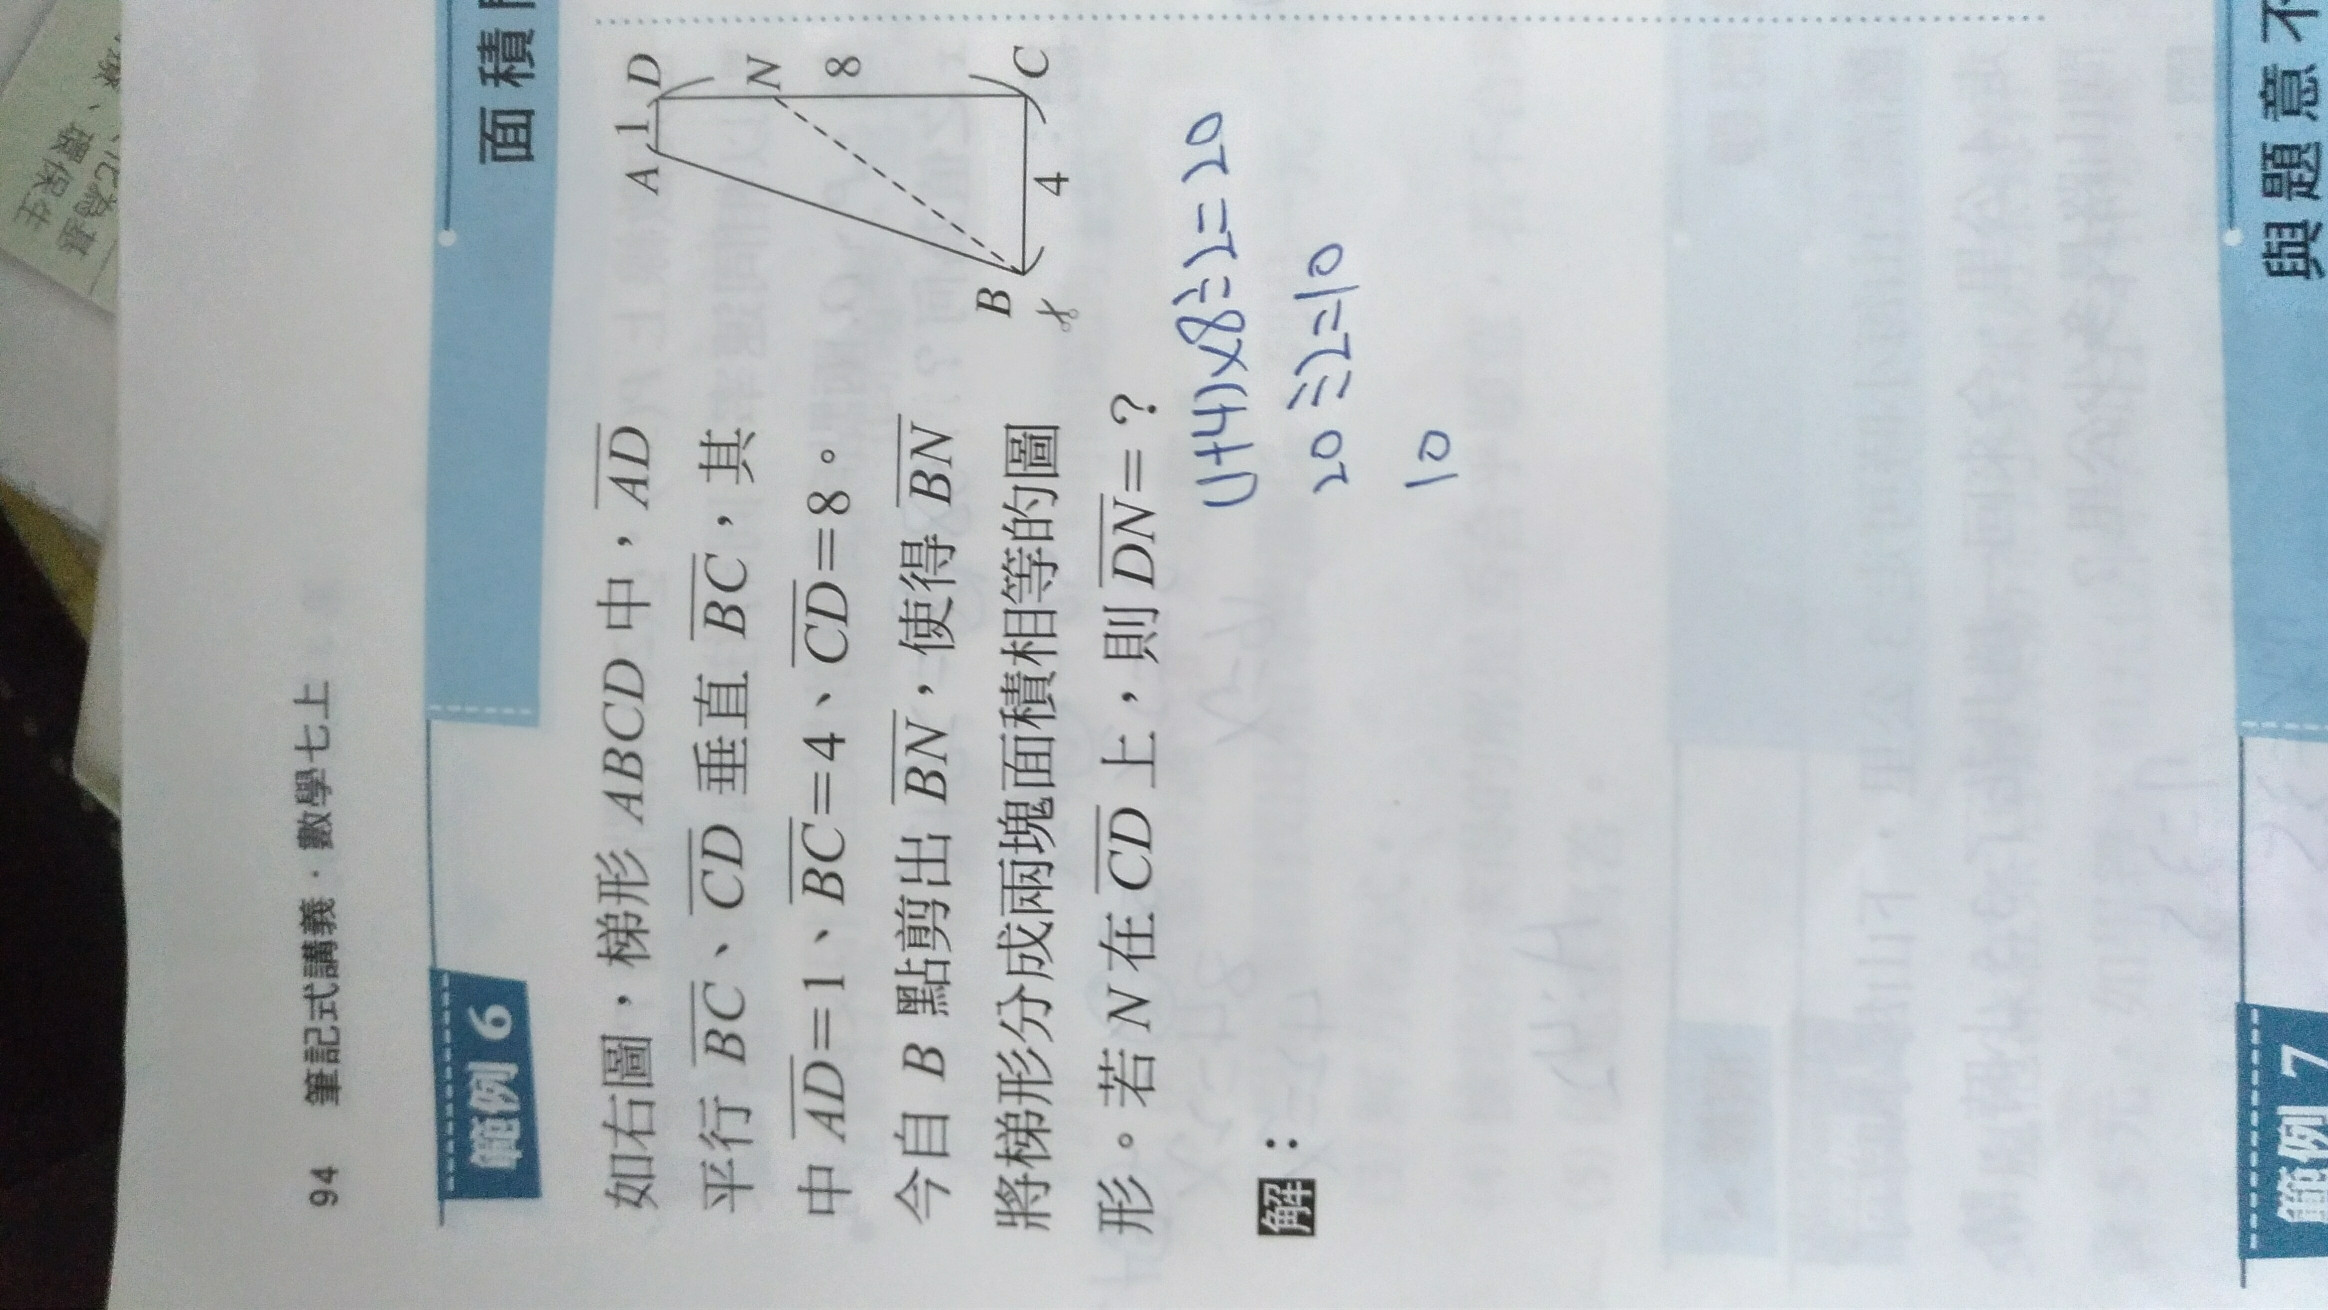 94 筆記式講義．數學七上
範例 6
面積
如右圖，梯形 ABCD 中，AD
平行 BC、CD 垂直 BC，其
中 AD=1、BC=4、CD=8。
今自 B 點剪出 BN，使得 BN
將梯形分成兩塊面積相等的圖
形。若 N 在 CD 上，則 DN=？
A 1 D
N
8
B 4 C
解：
(1+4)×8÷2=20
20÷2=10
10
範例 7
與題意不
環保